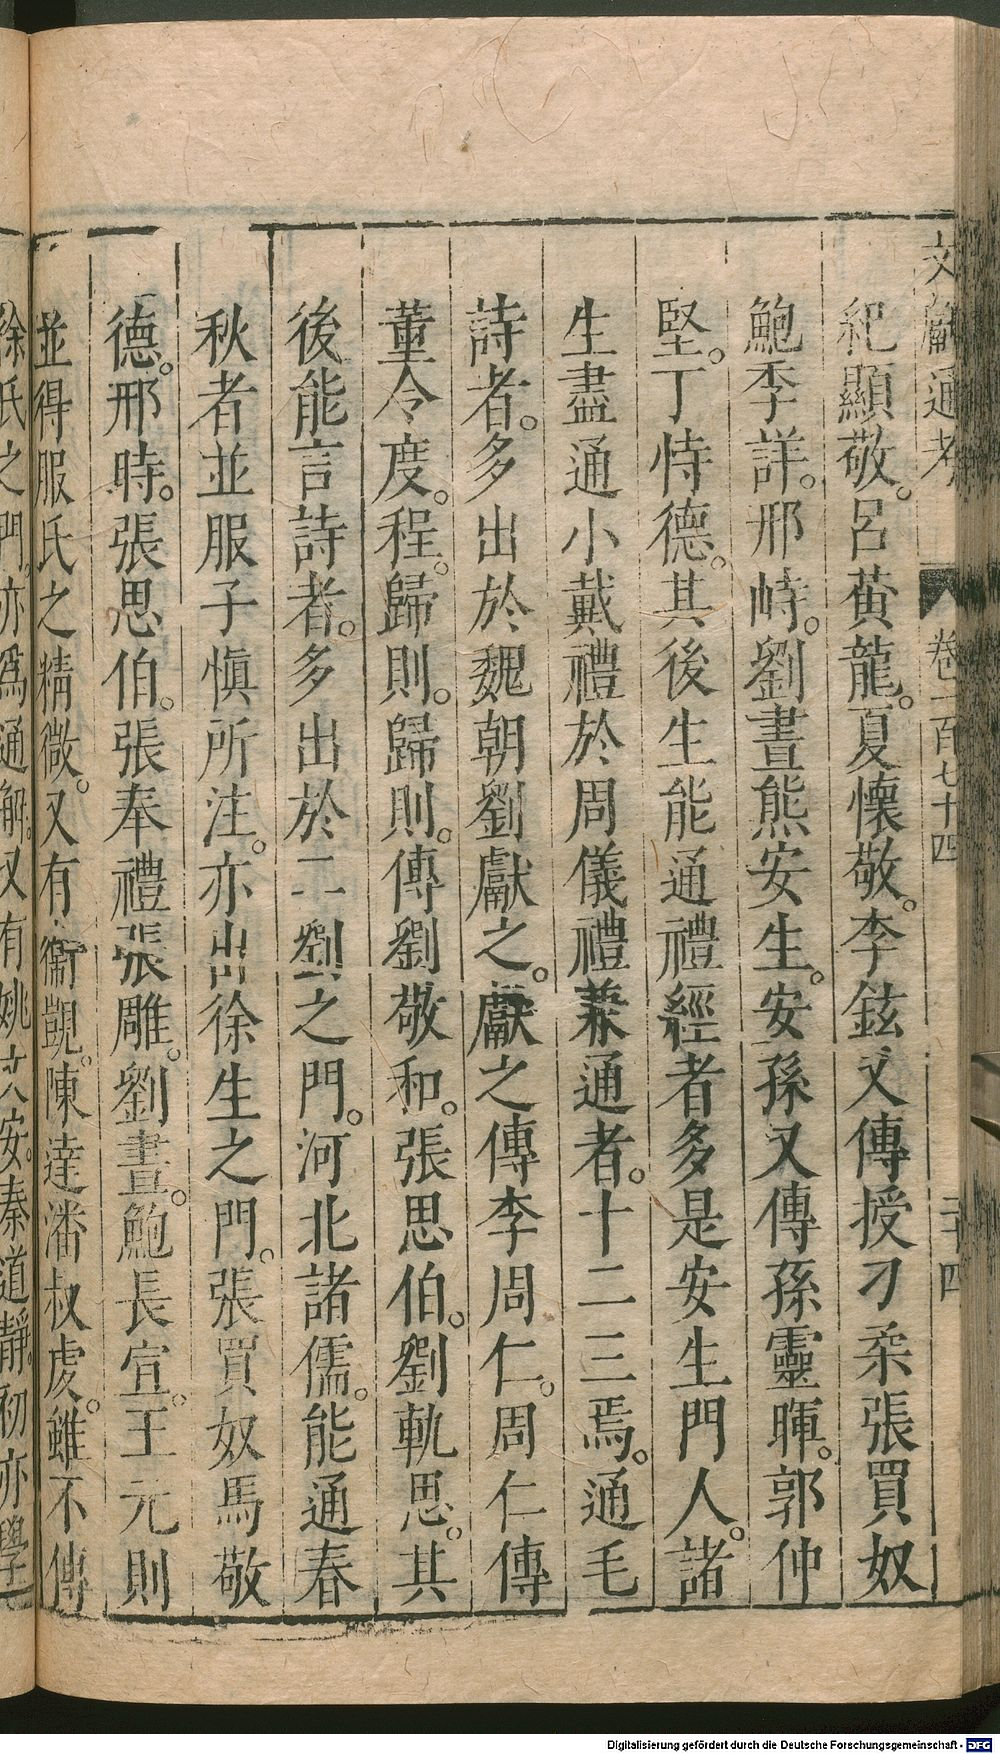 文獻通考 卷一百七十四 二十四
紀顯敬。呂黃龍。夏懷敬。李鉉又傳授刁柔張買奴
鮑季詳。邢峙。劉晝熊安生。安孫又傳孫靈暉。郭仲
堅。丁恃德。其後生能通禮經者多是安生門人。諸
生盡通小戴禮於周儀禮兼通者。十二三焉。通毛
詩者。多出於魏朝劉獻之。獻之傳李周仁。周仁傳
董令度。程歸則。歸則。傳劉敬和。張思伯。劉軌思。其
後能言詩者。多出於二劉之門。河北諸儒。能通春
秋者並服子慎所注。亦出徐生之門。張買奴馬敬
德。邢時。張思伯。張奉禮張雕。劉晝。鮑長宣。王元則
並得服氏之精微。又有衞覬。陳達潘叔虔。雖不傳
徐氏之門。亦爲通解。又有姚文安。秦道靜。初亦學
Digitalisierung gefördert durch die Deutsche Forschungsgemeinschaft - DFG